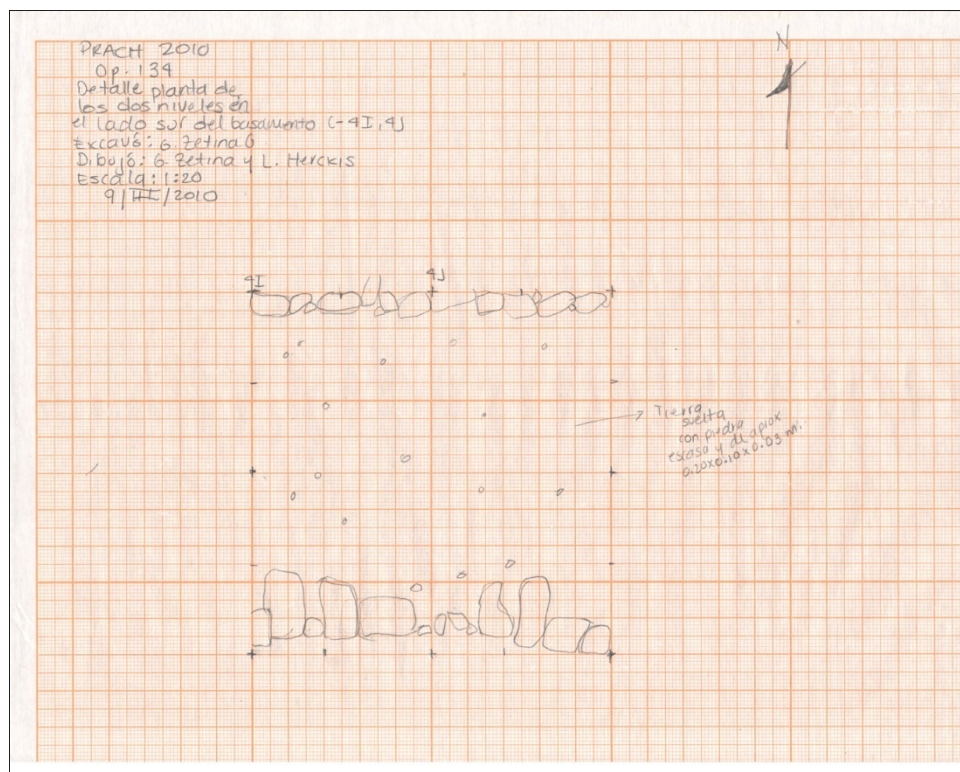 PRACH 2010
Op. 134
Detalle planta de
los dos niveles en
el lado sur del basamento (-4I, 4J
Excavó: G. Zetina G
Dibujó: G. Zetina y L. Herckis
Escala: 1:20
9/III/2010
N
4I 4J
Tierra
suelta
con piedra
escasa y de aprox
0.20x0.10x0.03 m.